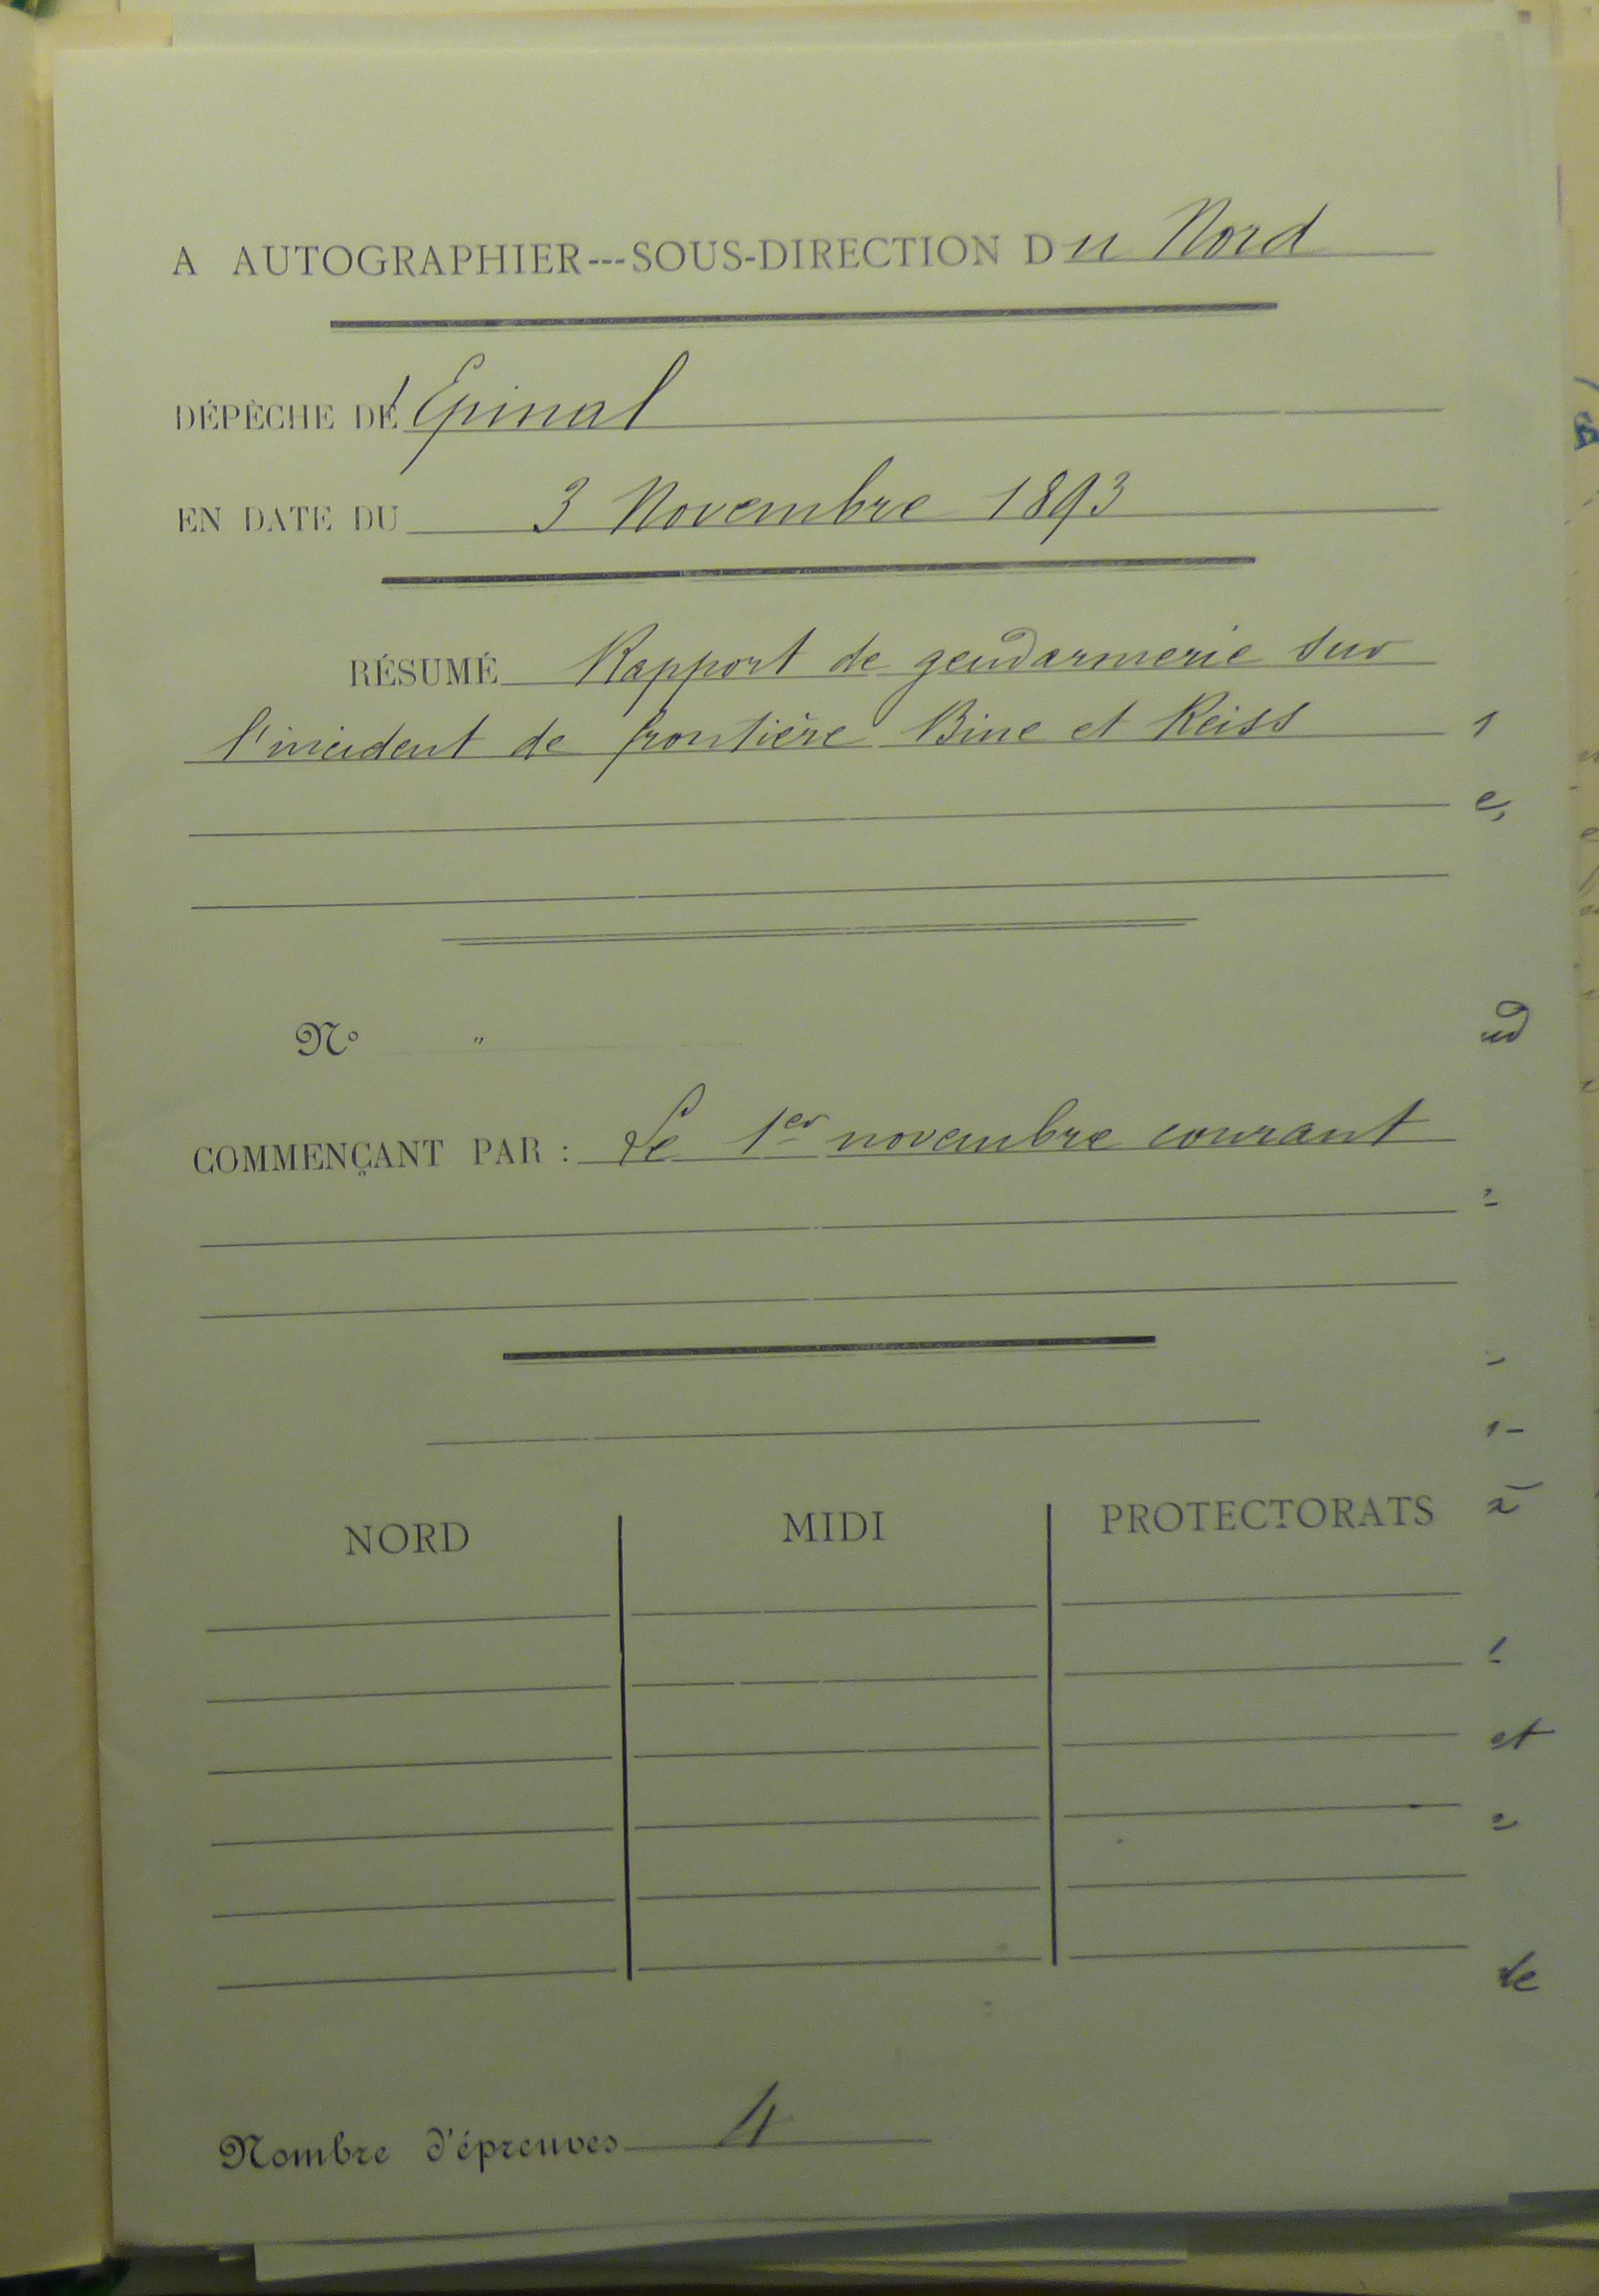 A AUTOGRAPHIER---SOUS-DIRECTION Du Nord
DÉPÊCHE D'Epinal
EN DATE DU 3 Novembre 1893
RÉSUMÉ Rapport de gendarmerie sur
l'incident de frontière Bine et Reiss
No "
COMMENÇANT PAR : Le 1er novembre courant
NORD MIDI PROTECTORATS
et
de
Nombre d'épreuves 4